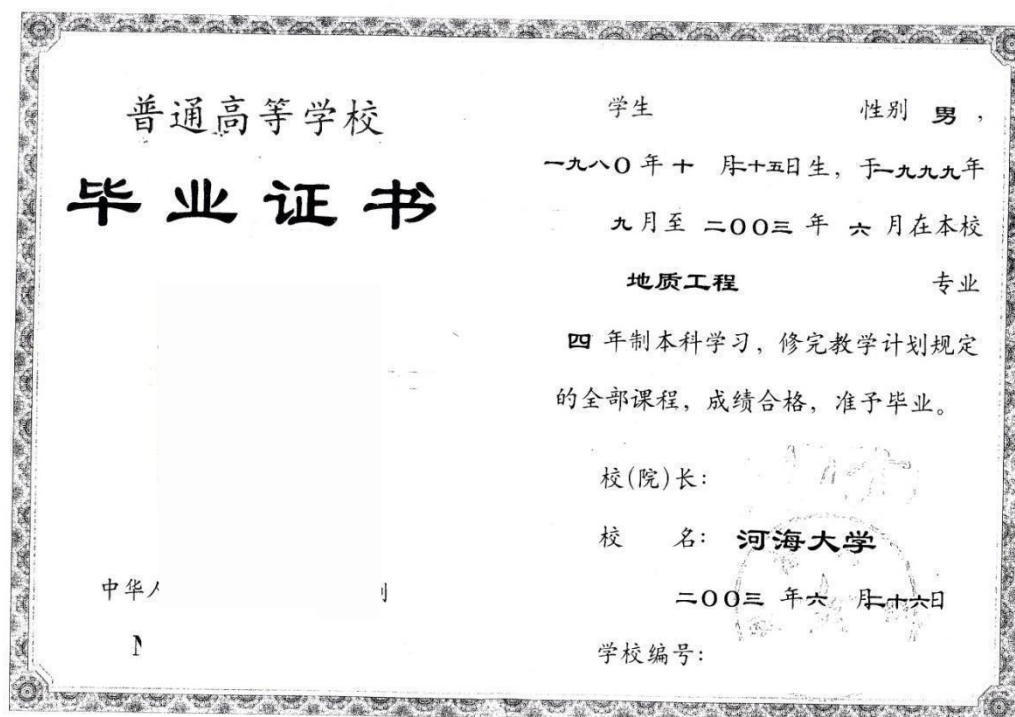 普通高等学校
毕业证书
中华
学生 性别 男，
一九八〇年十月二十五日生，于一九九九年
九月至二〇〇三年六月在本校
地质工程 专业
四年制本科学习，修完教学计划规定
的全部课程，成绩合格，准予毕业。
校(院)长：
校名：河海大学
二〇〇三年六月二十六日
学校编号：